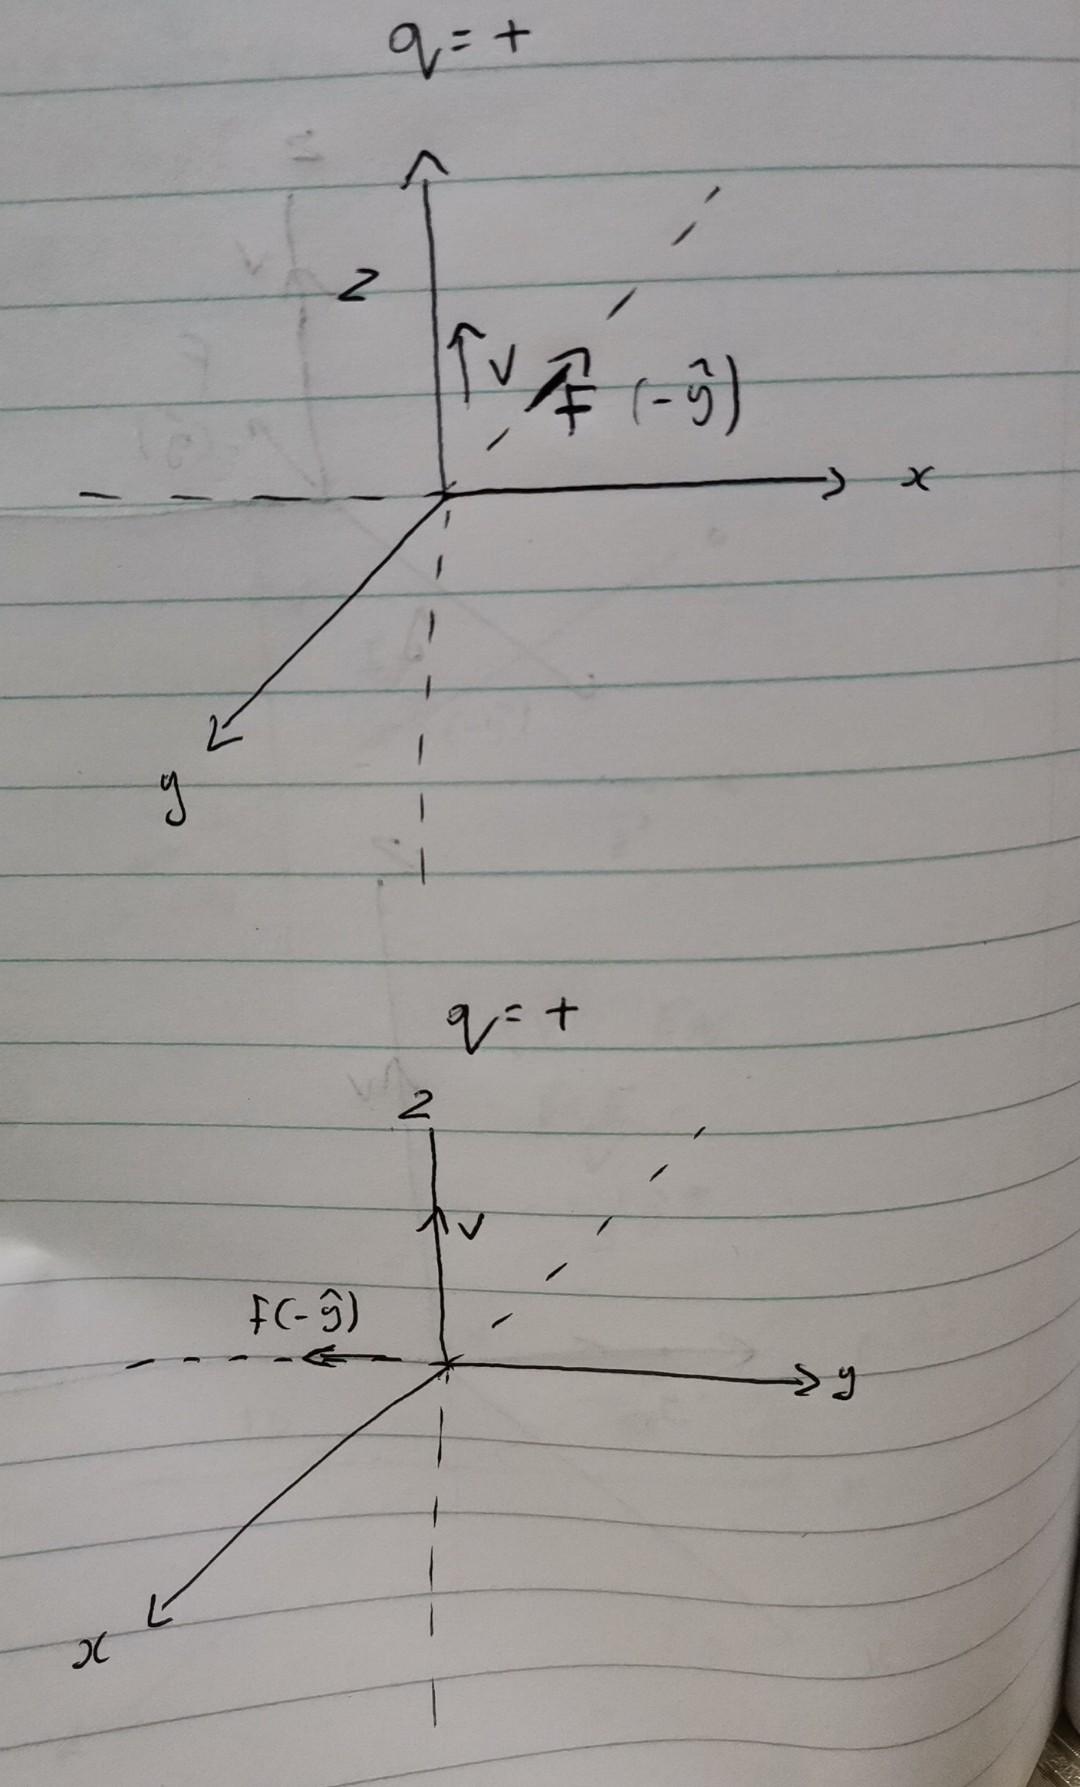 q = +
z
v F (-ŷ)
x
y
q = +
z
v
F(-ŷ)
y
x